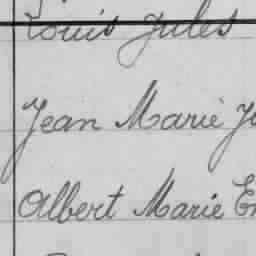 Louis Jules
Jean Marie
Albert Marie